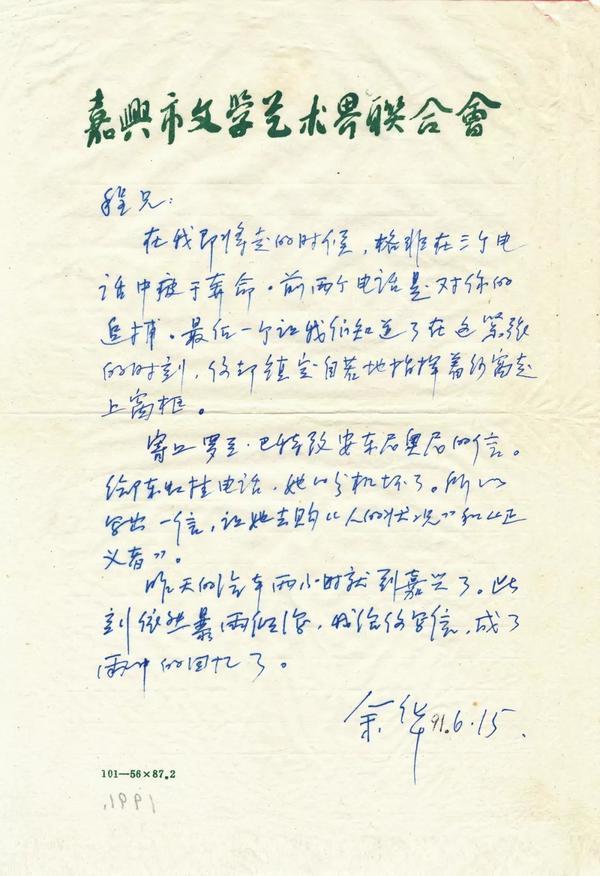 嘉興市文学艺术界联合會
程兄：
在我即将走的时候，格非在三个电
话中疲于奔命。前两个电话是对你的
追捕。最后一个让我们知道了在这紧张
的时刻，你却镇定自若地指挥着纱窗走
上窗框。
寄上罗兰·巴特致安东尼奥尼的信。
给陈虹挂电话，她的分机坏了。所以
写出一信，让她去购《人的状况》和《正
义者》。
昨天的汽车两小时就到嘉兴了。此
刻依然暴雨倾泻，我给你写信，成了
雨中的回忆了。
余华 91.6.15.
101—56×87.2
1991.